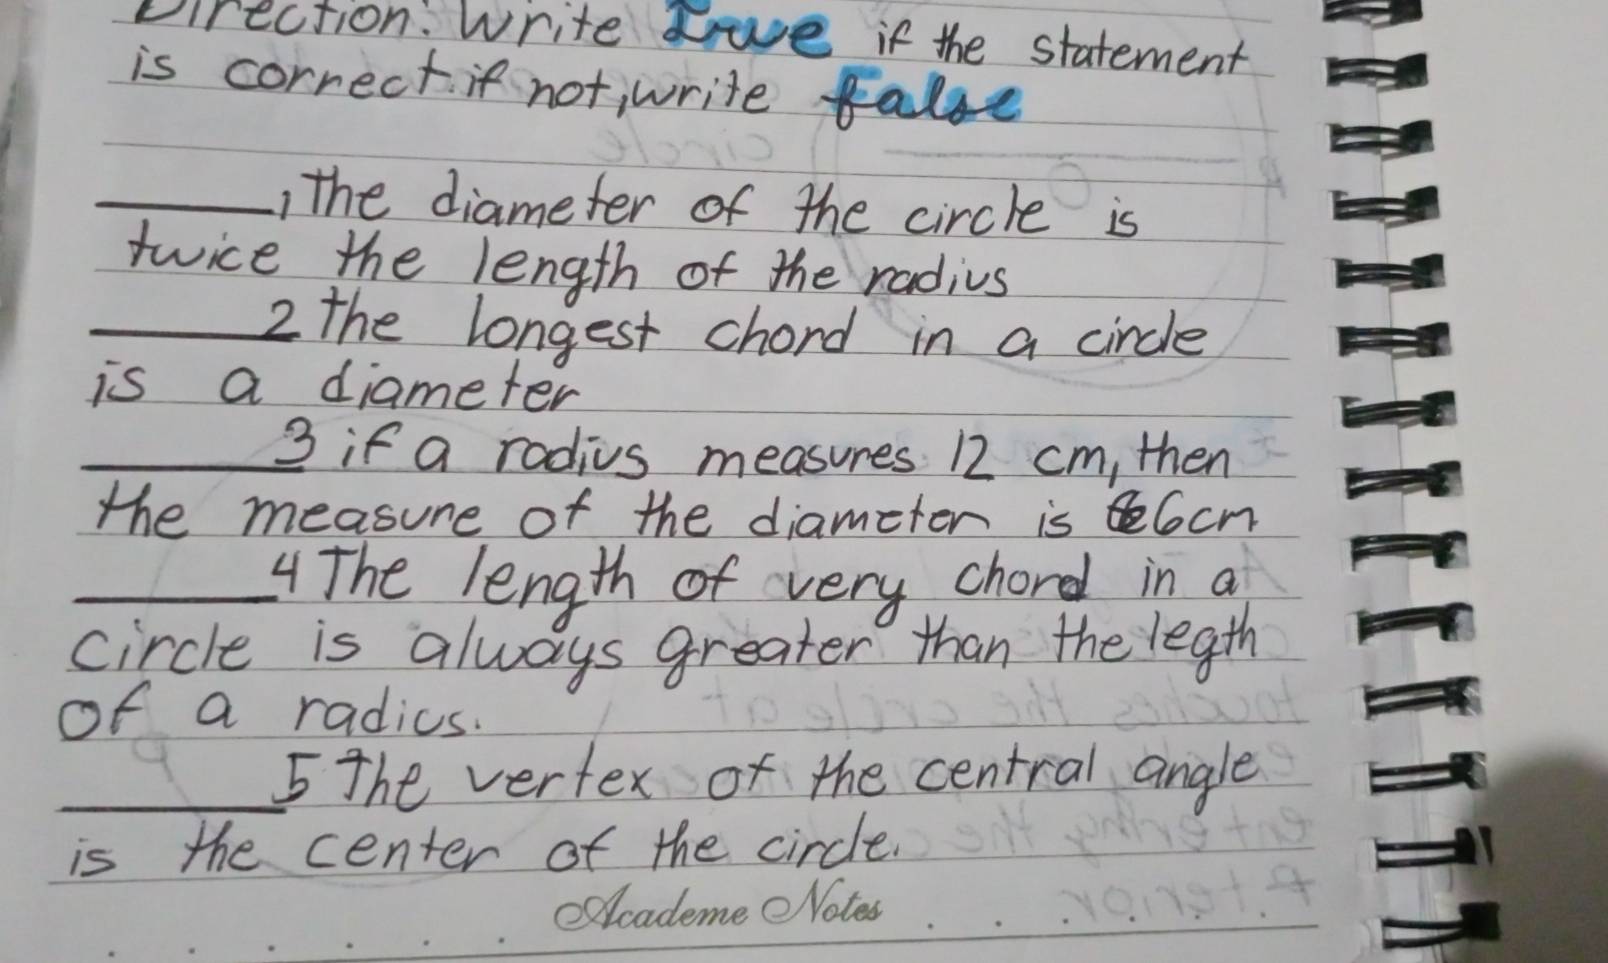 Direction: Write True if the statement
is correct. if not, write false
1 The diameter of the circle is
twice the length of the radius
2 The longest chord in a circle
is a diameter
3 if a radius measures 12 cm, then
the measure of the diameter is 6cm
4 The length of very chord in a
circle is always greater than the legth
of a radius.
5 The vertex of the central angle
is the center of the circle.
Academe Notes